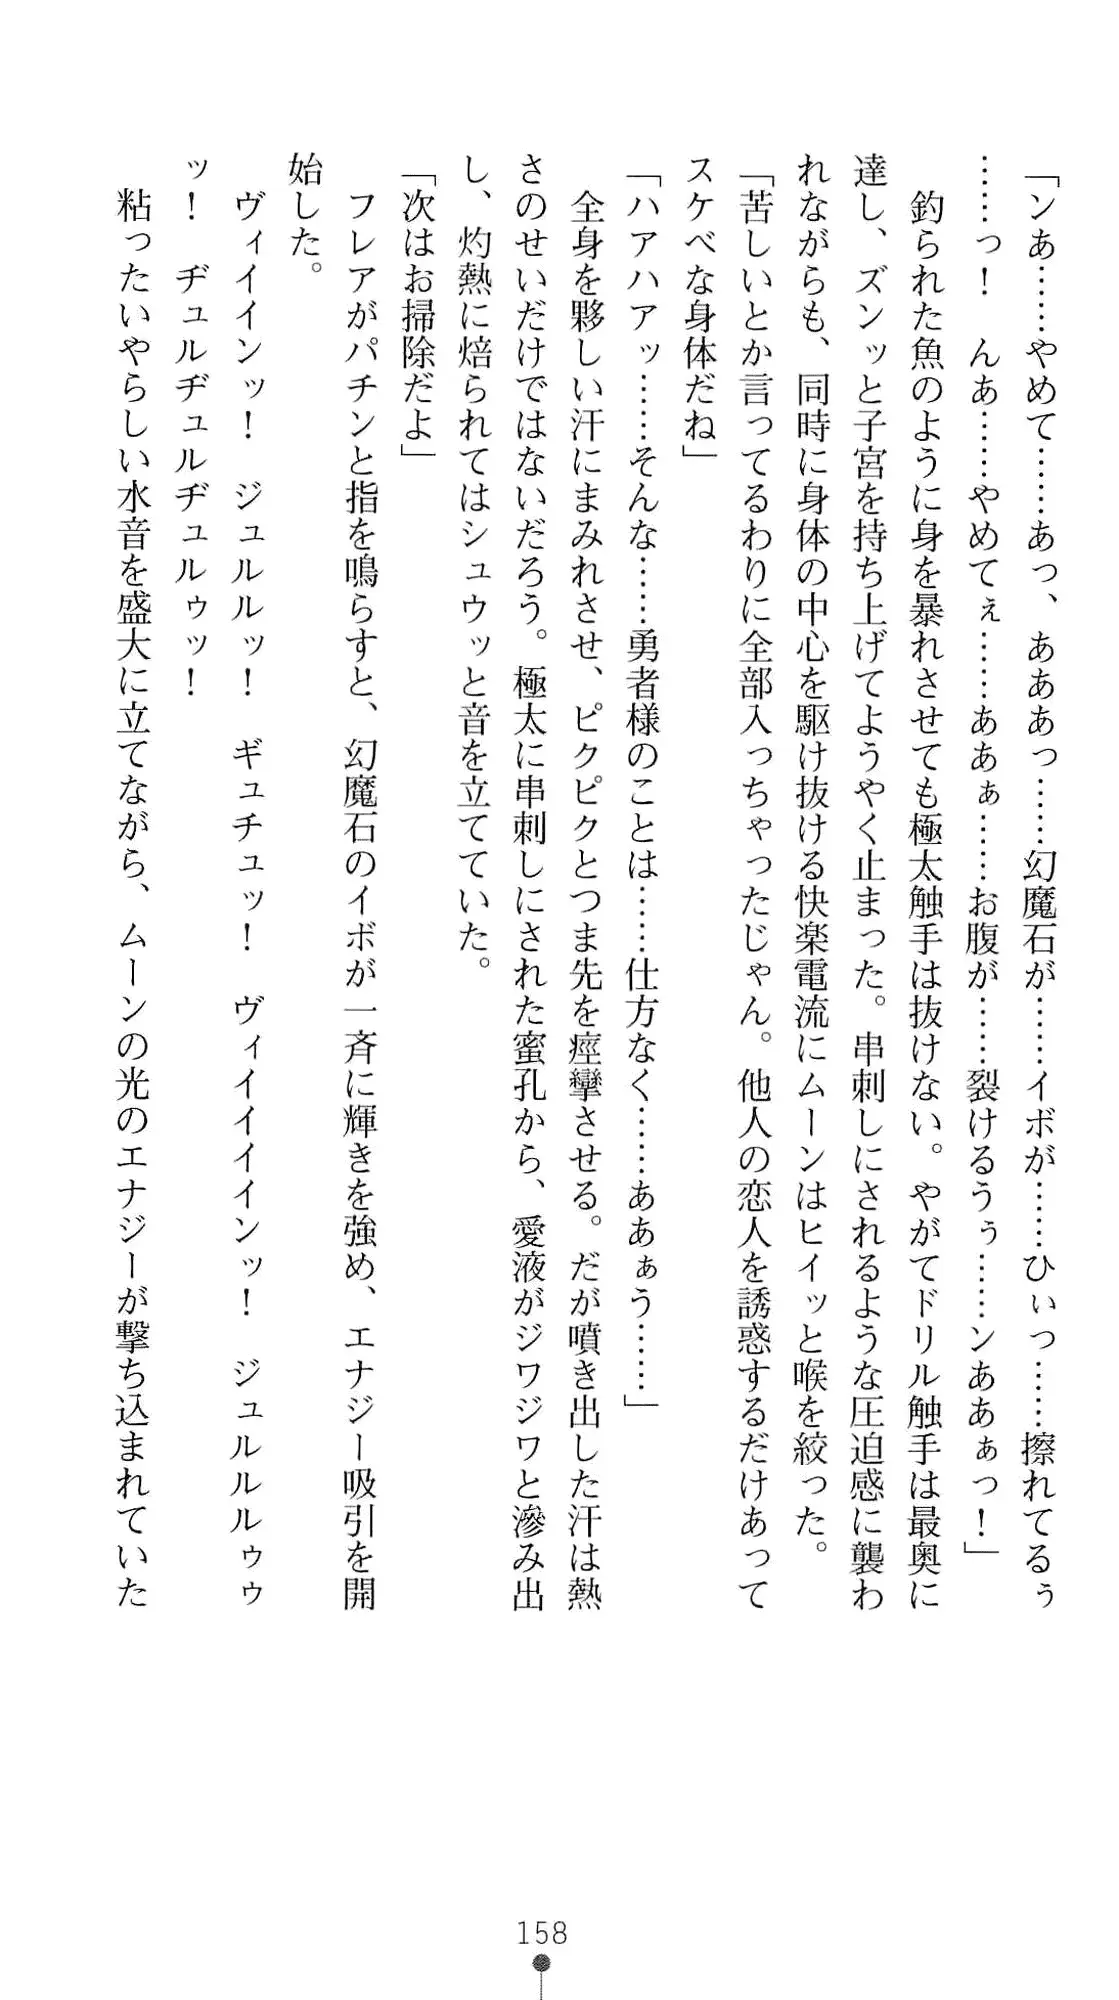 「ンあ……やめて……あっ、あああっ……幻魔石が……イボが……ひぃっ……擦れてるぅ
……っ！　んあ……やめてぇ……ああぁ……お腹が……裂けるうぅ……ンああぁっ！」
　釣られた魚のように身を暴れさせても極太触手は抜けない。やがてドリル触手は最奥に
達し、ズンッと子宮を持ち上げてようやく止まった。串刺しにされるような圧迫感に襲わ
れながらも、同時に身体の中心を駆け抜ける快楽電流にムーンはヒイッと喉を絞った。
「苦しいとか言ってるわりに全部入っちゃったじゃん。他人の恋人を誘惑するだけあって
スケベな身体だね」
「ハアハアッ……そんな……勇者様のことは……仕方なく……ああぁう……」
　全身を夥しい汗にまみれさせ、ピクピクとつま先を痙攣させる。だが噴き出した汗は熱
さのせいだけではないだろう。極太に串刺しにされた蜜孔から、愛液がジワジワと滲み出
し、灼熱に焙られてはシュウッと音を立てていた。
「次はお掃除だよ」
　フレアがパチンと指を鳴らすと、幻魔石のイボが一斉に輝きを強め、エナジー吸引を開
始した。
　ヴィイインッ！　ジュルルッ！　ギュチュッ！　ヴィイイイインッ！　ジュルルルゥゥ
ッ！　ヂュルヂュルヂュルゥッ！
　粘ったいやらしい水音を盛大に立てながら、ムーンの光のエナジーが撃ち込まれていた
158